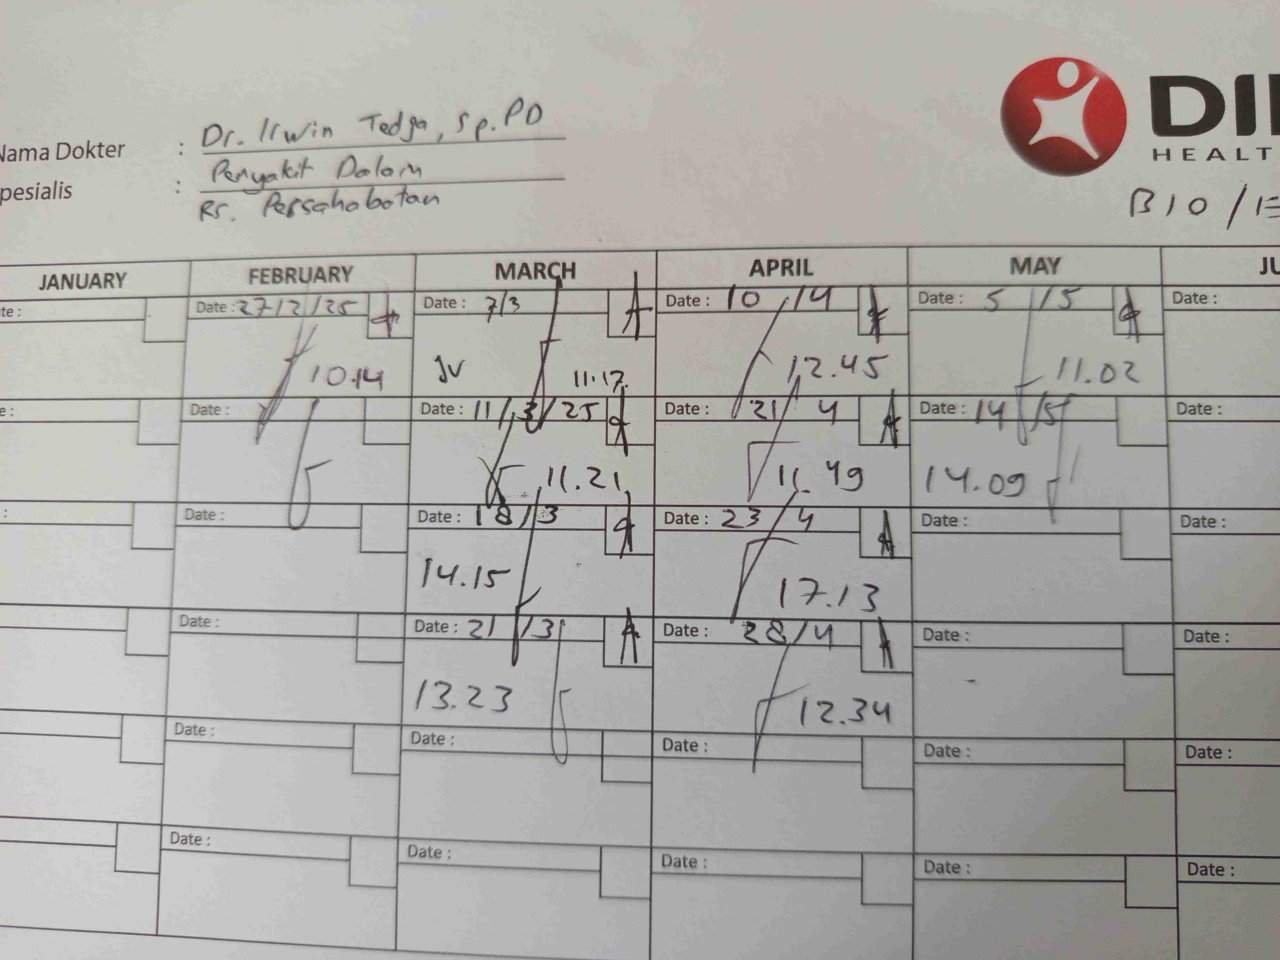 Nama Dokter : Dr. Irwin Tedja, Sp.PD
pesialis : Penyakit Dalam
Rs. Persahabatan
DI
HEALT
B10/
JANUARY FEBRUARY MARCH APRIL MAY JU
te: Date: 27/2/25 Date: 7/3 Date: 10/4 Date: 5/5 Date:
10.14 JV 11.17 12.45 11.02
e: Date: Date: 11/3/25 Date: 21/4 Date: 14/5 Date:
11.21 11.49 14.09
: Date: Date: 18/3 Date: 23/4 Date: Date:
14.15 17.13
Date: Date: 21/3 Date: 28/4 Date: Date:
13.23 12.34
Date: Date: Date: Date: Date:
Date: Date: Date: Date: Date: